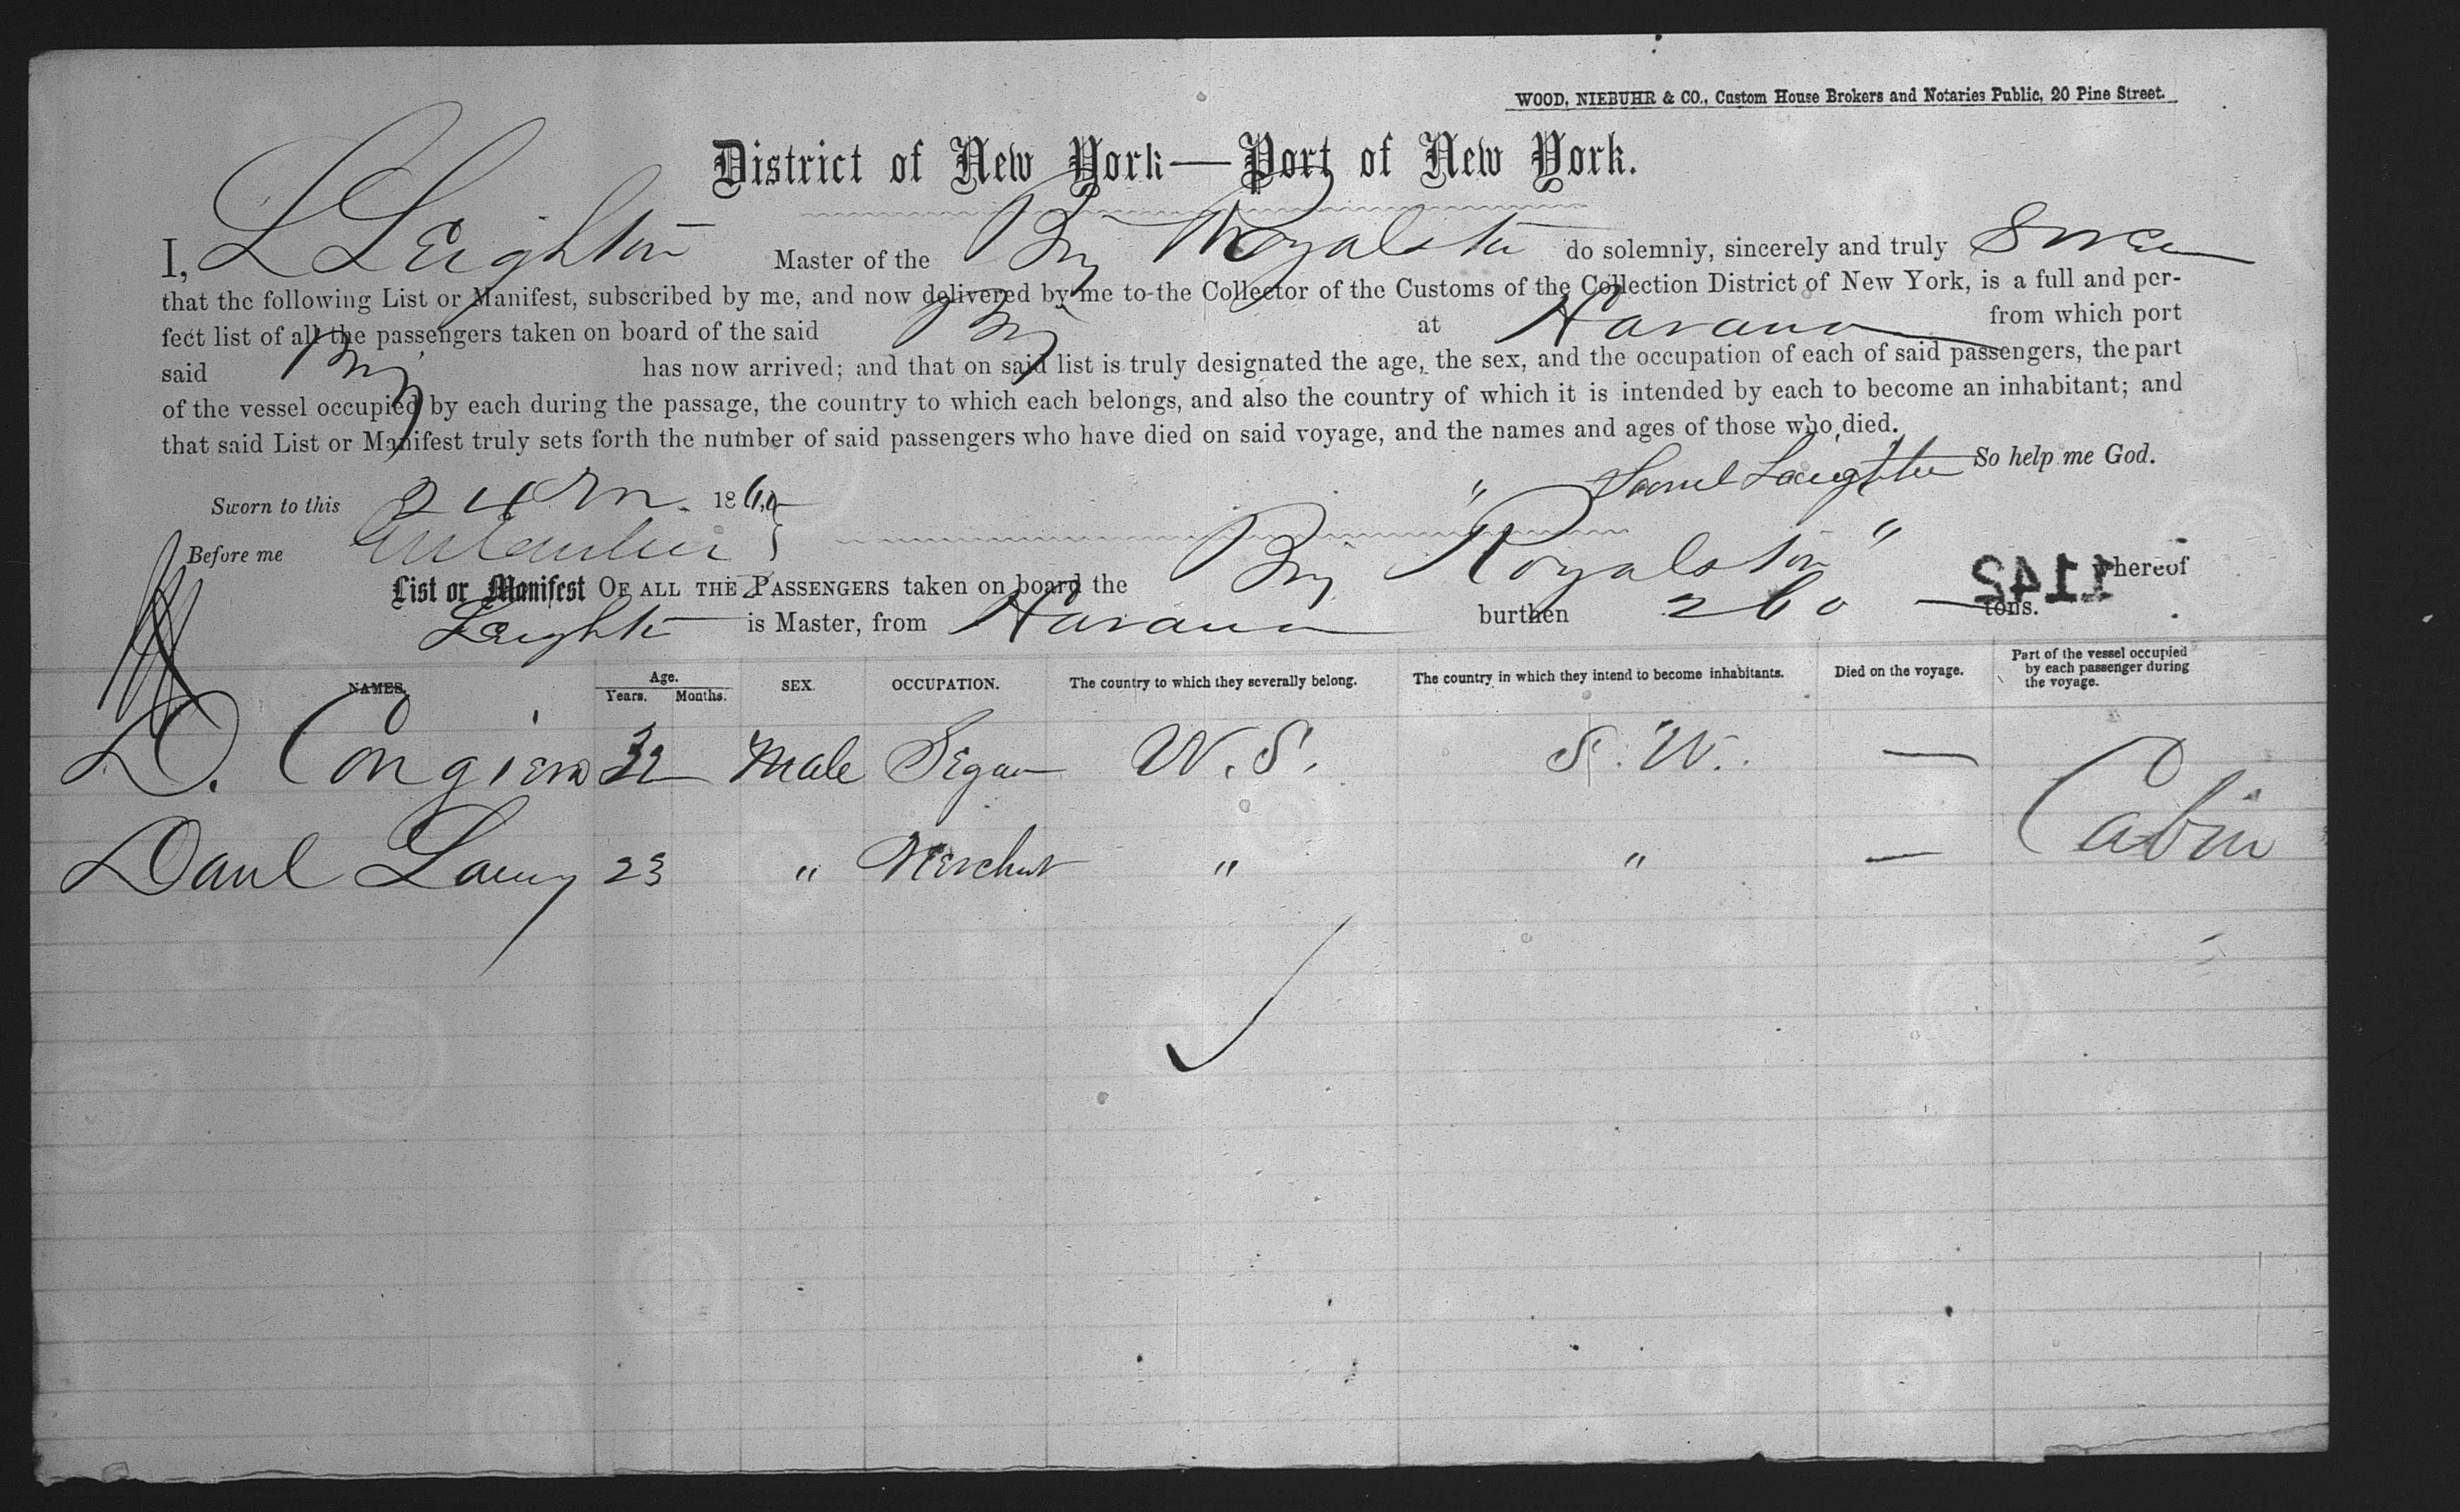 WOOD, NIEBUHR & CO., Custom House Brokers and Notaries Public, 20 Pine Street.
District of New York—Port of New York.
I, L Leighton Master of the Brig Royalston do solemnly, sincerely and truly swear
that the following List or Manifest, subscribed by me, and now delivered by me to the Collector of the Customs of the Collection District of New York, is a full and per-
fect list of all the passengers taken on board of the said Brig at Havana from which port
said Brig has now arrived; and that on said list is truly designated the age, the sex, and the occupation of each of said passengers, the part
of the vessel occupied by each during the passage, the country to which each belongs, and also the country of which it is intended by each to become an inhabitant; and
that said List or Manifest truly sets forth the number of said passengers who have died on said voyage, and the names and ages of those who died.
Leighton So help me God.
Sworn to this 24 186
Before me
List or Manifest OF ALL THE PASSENGERS taken on board the Brig "Royalston" whereof
1142
Leighton is Master, from Havana burthen 260 tons.
NAMES. Age. Years. Months. SEX. OCCUPATION. The country to which they severally belong. The country in which they intend to become inhabitants. Died on the voyage. Part of the vessel occupied by each passenger during the voyage.
D. 32 Male Segar U.S. S. U. — Cabin
Danl 23 " Merchant " " —